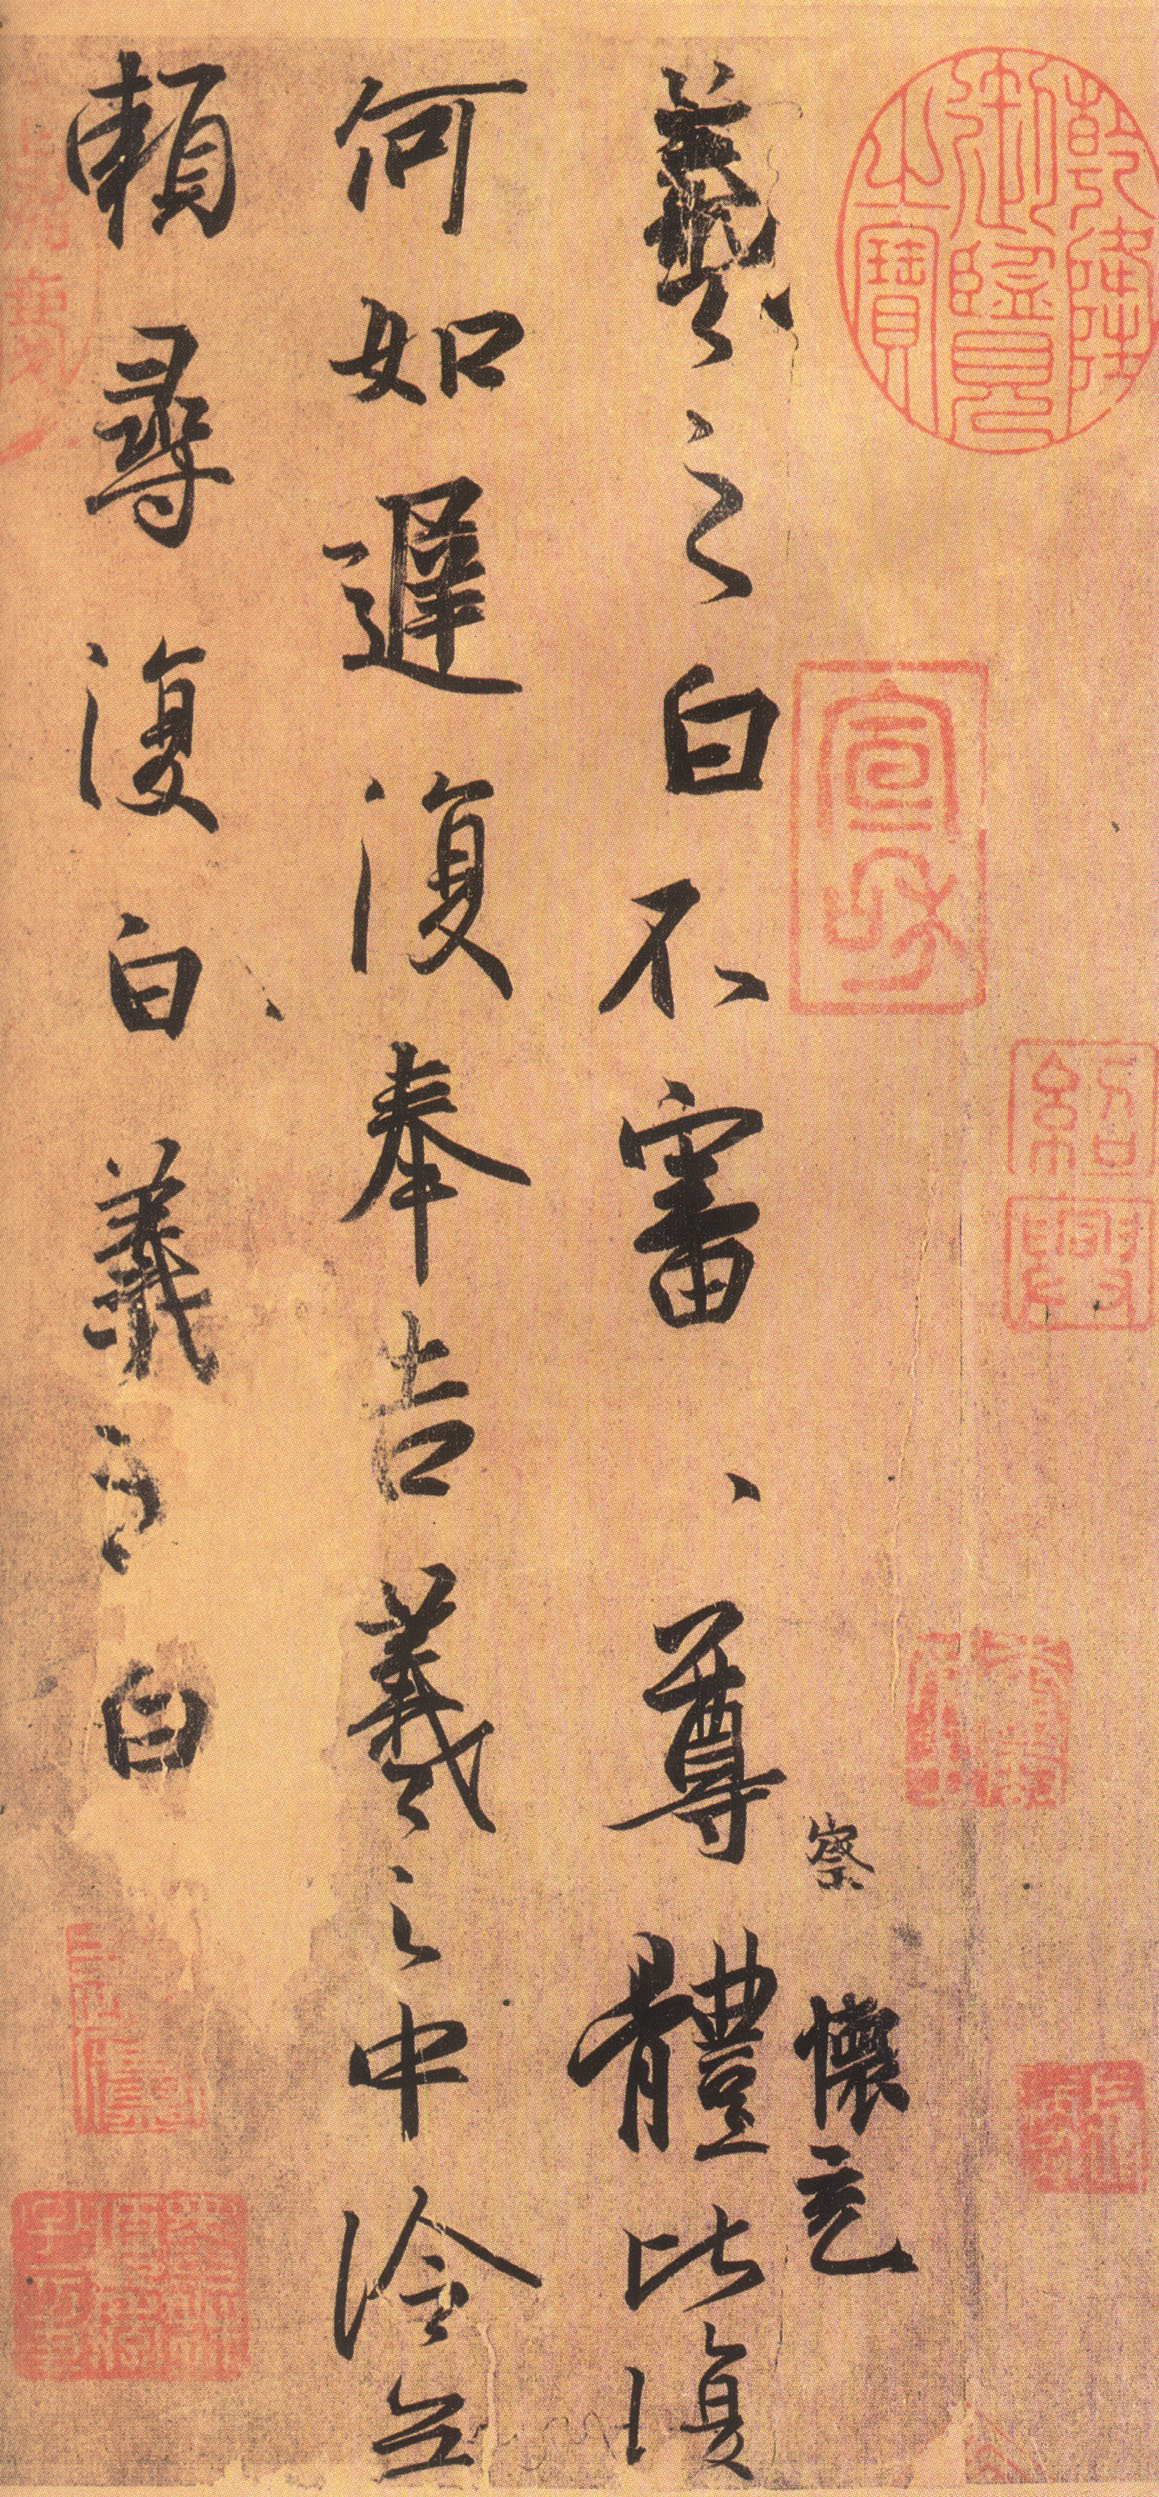 乾隆御覽之寶
紹興
宣龢
察
懷充
羲之白不審、尊體比復
何如遲復奉告羲之中冷無
賴尋復白羲之白